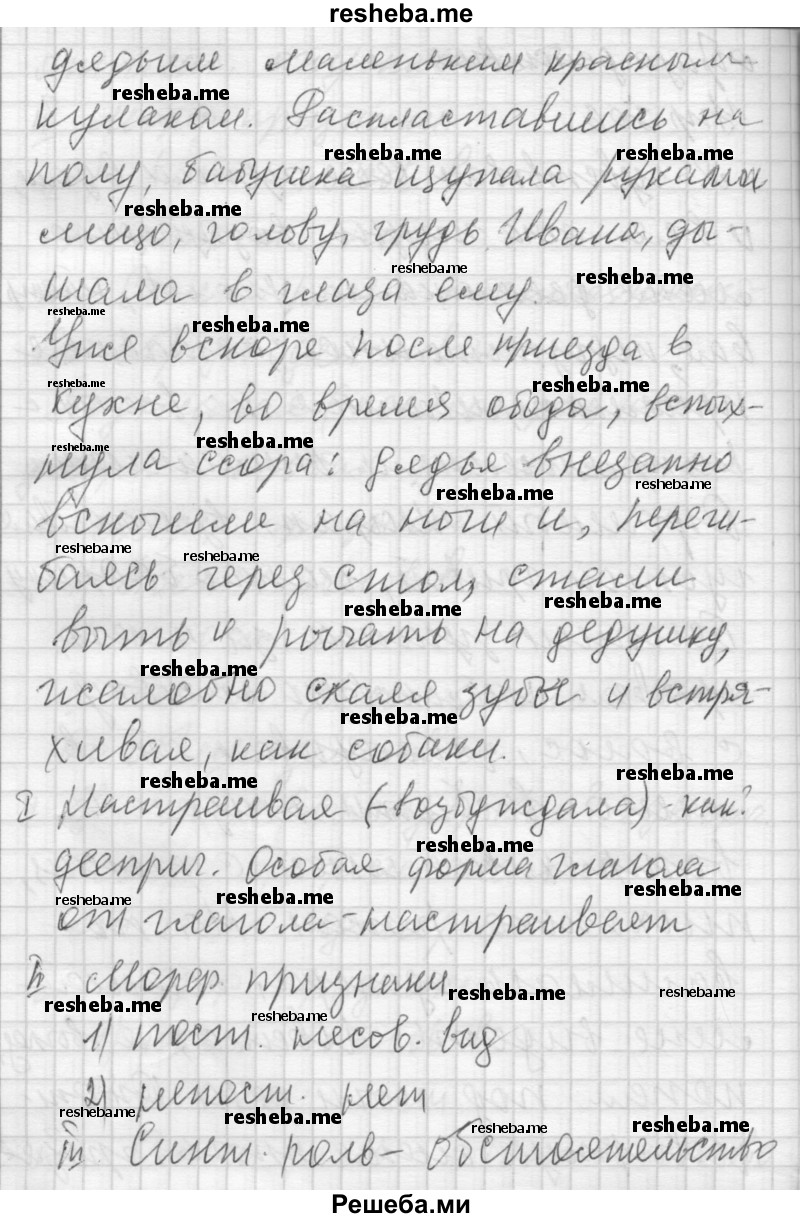 resheba.me
дядьим маленьким красным
resheba.me
кулаком. Распластавшись на
resheba.me resheba.me
полу, бабушка щупала руками
resheba.me
лицо, голову, грудь Ивана, ды-
resheba.me resheba.me
шала в глаза ему.
resheba.me resheba.me
Уже вскоре после приезда в
resheba.me resheba.me
кухне, во время обеда, вспых-
resheba.me resheba.me
нула ссора: дядья внезапно
resheba.me resheba.me
вскочили на ноги и, переги-
resheba.me resheba.me
баясь через стол, стали
resheba.me resheba.me
выть и рычать на дедушку,
resheba.me
жалобно скаля зубы и встря-
resheba.me
хивая, как собаки.
resheba.me resheba.me
I Настраивая (-возбуждала) - как?
resheba.me
дееприч. Особая форма глагола
resheba.me resheba.me resheba.me
от глагола - настраивает
II. Морф признаки
resheba.me resheba.me resheba.me resheba.me
1) пост. несов. вид
2) непост. нет
resheba.me resheba.me resheba.me resheba.me
III Синт. роль - обстоятельство
Решеба.ми